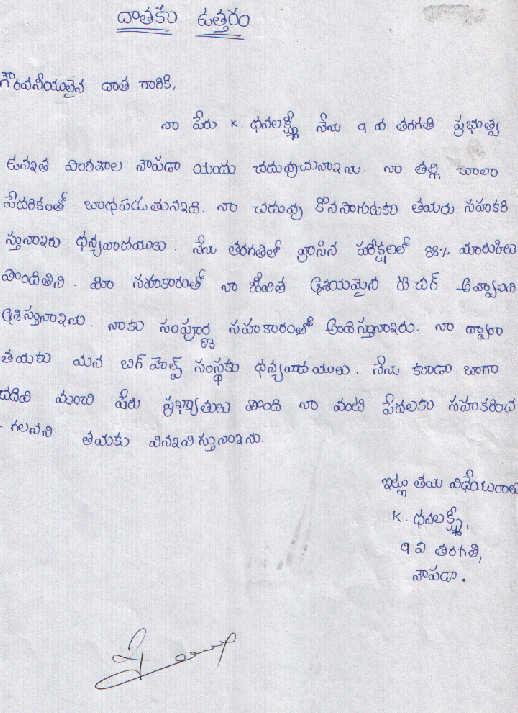 దాతకు ఉత్తరం
గౌరవనీయులైన దాత గారికి,
నా పేరు K ధనలక్ష్మి నేను 9 వ తరగతి ప్రభుత్వ
ఉన్నత పాఠశాల నాపడా యందు చదువుచున్నాను. నా తల్లి చాలా
పేదరికంతో బాధపడుతున్నది. నా చదువు కొనసాగుటకు తమరు సహకరి
స్తున్నారు ధన్యవాదములు. నేను తరగతిలో వ్రాసిన పరీక్షలలో 88% మార్కులు
పొందితిని. మీ సహకారంతో నా జీవిత ఆశయమైన టీచర్ అవ్వాలని
ఆశిస్తున్నాను. నాకు సంపూర్ణ సహకారంతో అందిస్తున్నారు. నా ద్వారా
తమకు మన బిగ్ హెల్ప్ సంస్థకు ధన్యవాదములు. నేను కూడా బాగా
చదివి మంచి పేరు ప్రఖ్యాతులు పొంది నా వంటి పేదలకు సహకరించ
- గలనని తమకు విన్నవిస్తున్నాను.
ఇట్లు తమ విధేయురాలు
K. ధనలక్ష్మి,
9 వ తరగతి,
నాపడా.